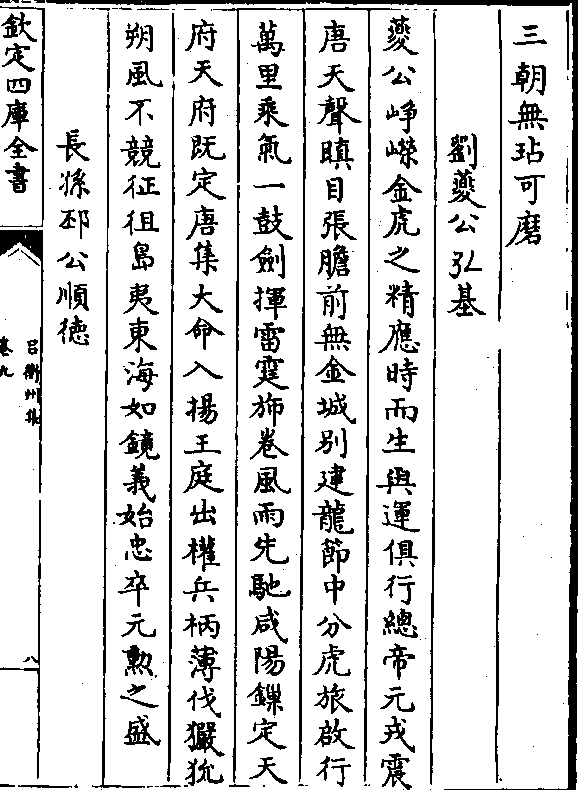 三朝無玷可磨
劉夔公弘基
夔公崢嶸金虎之精應時而生與運俱行總帝元戎震
唐天聲瞋目張膽前無金城別建龍節中分虎旅啟行
萬里乘氣一鼓劍揮雷霆斾卷風雨先馳咸陽鏁定天
府天府既定唐集大命入揚王庭出權兵柄薄伐玁狁
朔風不競征徂島夷東海如鏡義始忠卒元勲之盛
長孫邳公順徳
欽定四庫全書
呂衡州集
卷九
八